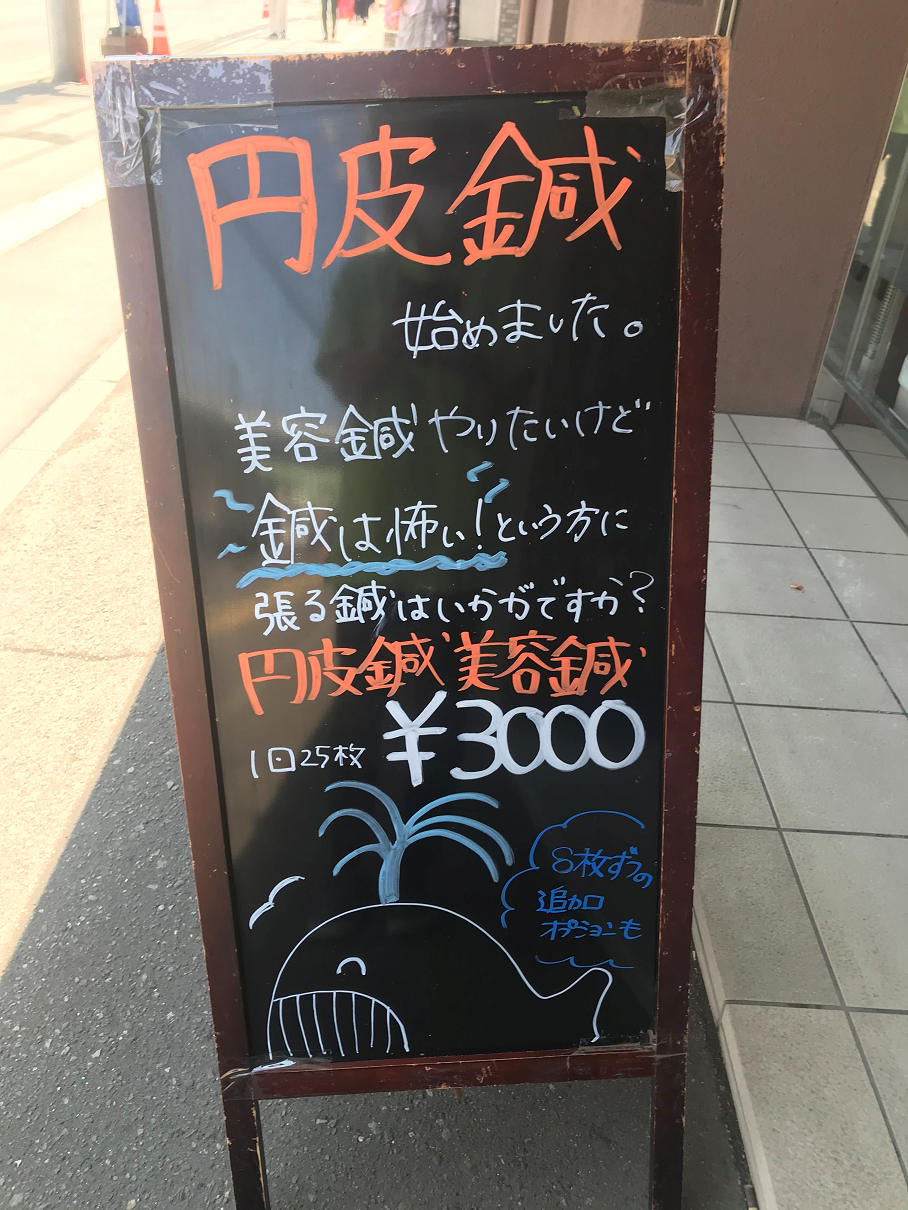 円皮鍼
始めました。
美容鍼やりたいけど
鍼は怖い!という方に
張る鍼はいかがですか?
円皮鍼美容鍼
1回25枚 ¥3000
8枚ずつの
追加
オプションも